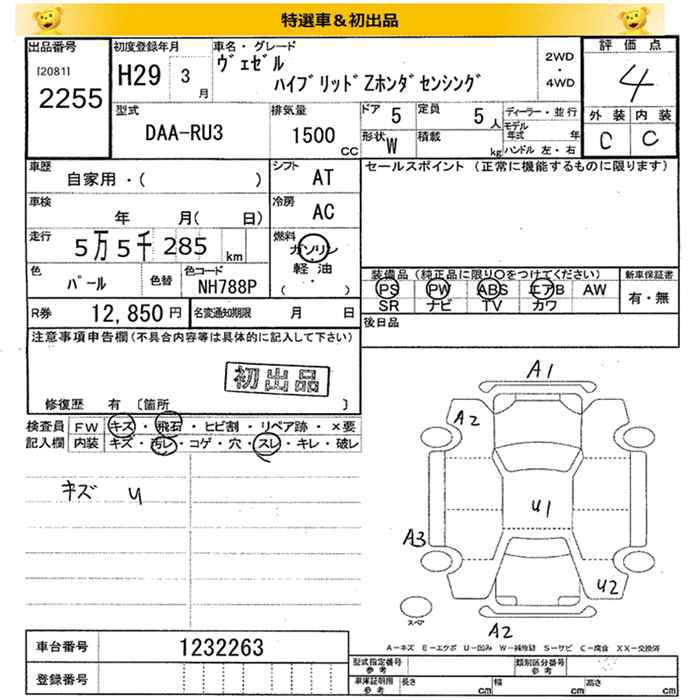 特選車＆初出品
出品番号 初度登録年月 車名・グレード 2WD・4WD 評価点
[2081]
2255 H29 3月 ヴェゼル
ハイブリッドZホンダセンシング 4
型式 排気量 ドア 5 定員 5人 ディーラー・並行 外装 内装
DAA-RU3 1500CC 形状 W 積載 kg モデル年式 年 C C
ハンドル 左・右
車歴 シフト セールスポイント (正常に機能するものに限ります)
自家用・( ) AT
車検 年 月( 日) 冷房 AC
走行 5万5千285km 燃料 ガソリン・軽油・( )
色 パール 色替 色コード NH788P
装備品(純正品に限り○をつけてください) 新車保証書
PS PW ABS エアB AW 有・無
SR ナビ TV カワ
R券 12,850円 名変通知期限 月 日 後日品
注意事項申告欄(不具合内容等は具体的に記入して下さい)
初出品
修復歴 有 〔箇所 〕
検査員 FW キズ・飛石・ヒビ割・リペア跡・×要
記入欄 内装 キズ・汚レ・コゲ・穴・スレ・キレ・破レ
キズ U
A1
A2
U1
A3
U2
スペア
A2
A－キズ E－エクボ U－凹み W－補修跡 S－サビ C－腐食 XX－交換済
車台番号 1232263
登録番号
型式指定番号 参考 類別区分番号 参考
車庫証明用 参考 長さ cm 幅 cm 高さ cm